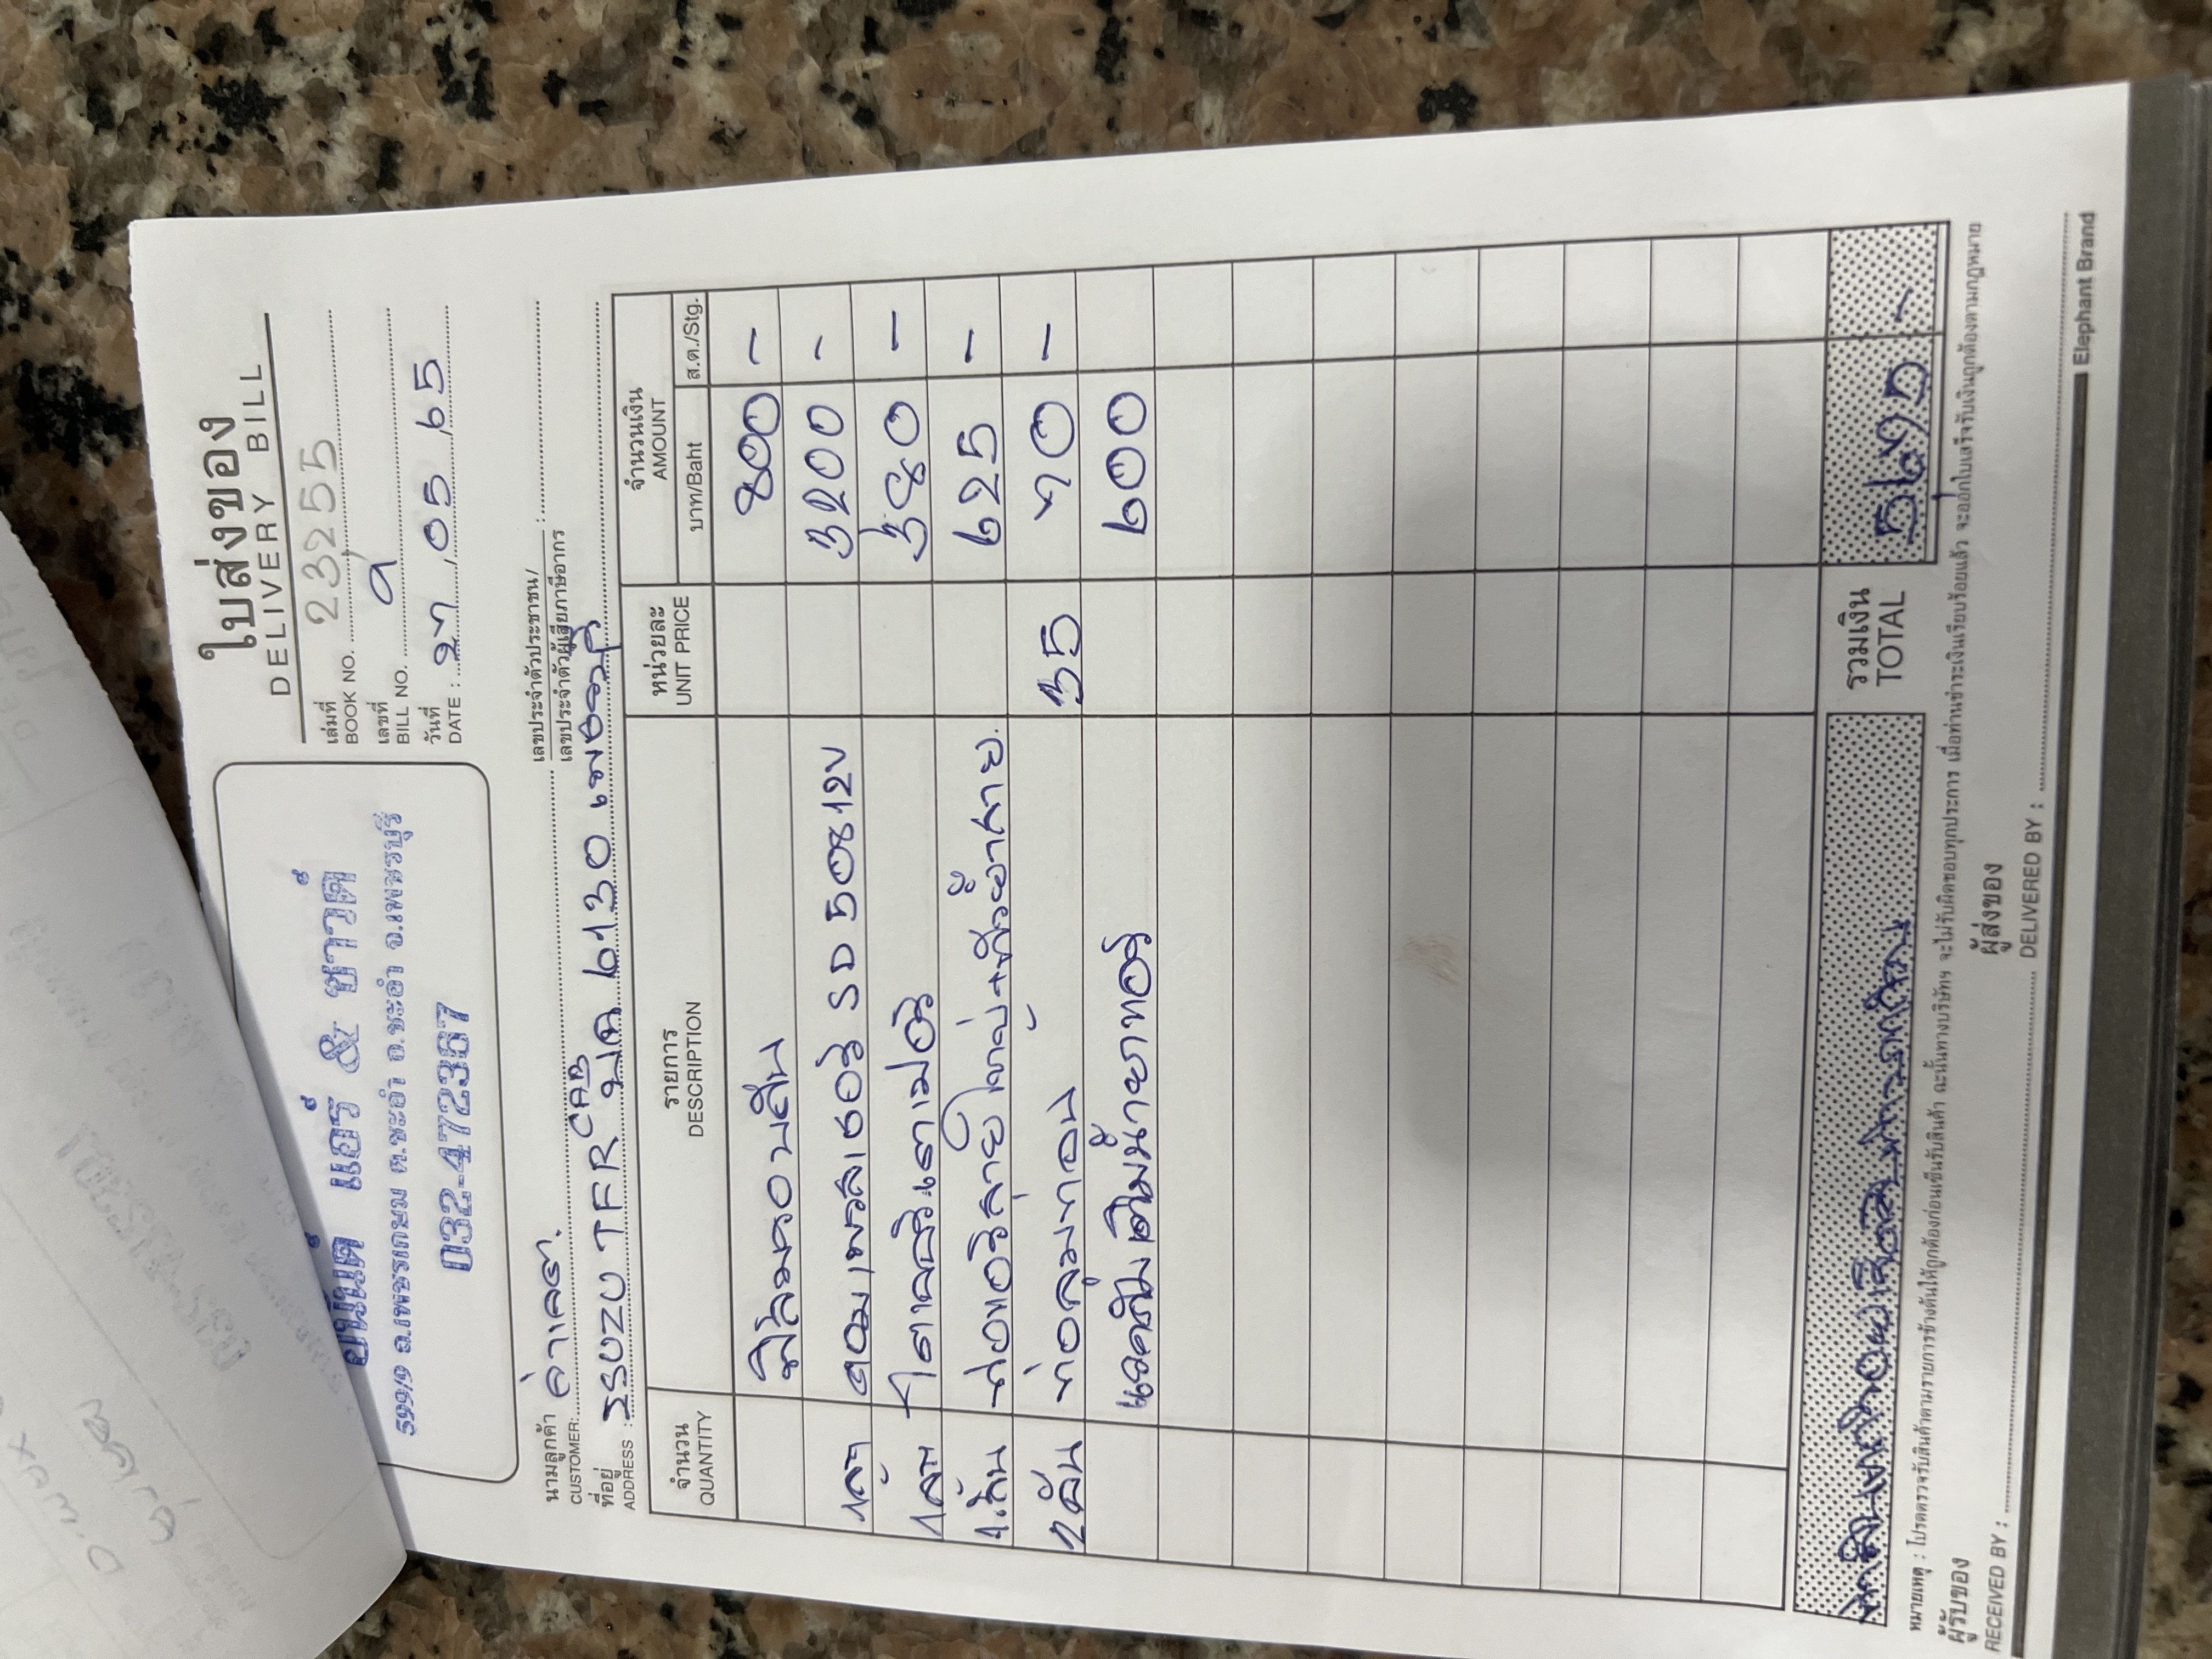 ใบส่งของ
DELIVERY BILL
ยนันต์ แอร์ & ซาวด์
599/9 ถ.เพชรเกษม ต.ชะอำ อ.ชะอำ จ.เพชรบุรี
032-472367
เล่มที่
BOOK NO. 23255
เลขที่
BILL NO. 9
วันที่
DATE : 27 / 05 / 65
นามลูกค้า
CUSTOMER:
เลขประจำตัวประชาชน/
เลขประจำตัวผู้เสียภาษีอากร
ที่อยู่
ADDRESS : ISUZU TFR CAB 6130 เพชรบุรี
จำนวน QUANTITY รายการ DESCRIPTION หน่วยละ UNIT PRICE จำนวนเงิน AMOUNT
บาท/Baht ส.ต./Stg.
800 -
คอมเพรสเซอร์ SD 508 12V 3200 -
380 -
1 เส้น 625 -
2 เส้น 35 70 -
แวคคั่มเติมน้ำยาแอร์ 600
รวมเงิน
TOTAL 5675 -
หมายเหตุ : โปรดตรวจรับสินค้าตามรายการข้างต้นให้ถูกต้องก่อนเซ็นรับสินค้า ฉะนั้นทางบริษัทฯ จะไม่รับผิดชอบทุกประการ เมื่อท่านชำระเงินเรียบร้อยแล้ว จะออกใบเสร็จรับเงินถูกต้องตามกฎหมาย
ผู้รับของ
RECEIVED BY :
ผู้ส่งของ
DELIVERED BY :
Elephant Brand